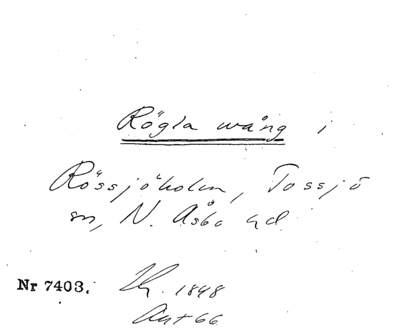 Rögla wång i
Rössjöholm, Tossjö
sn, N. Åsbo hd
Nr 7403. Hy. 1848
Akt 66